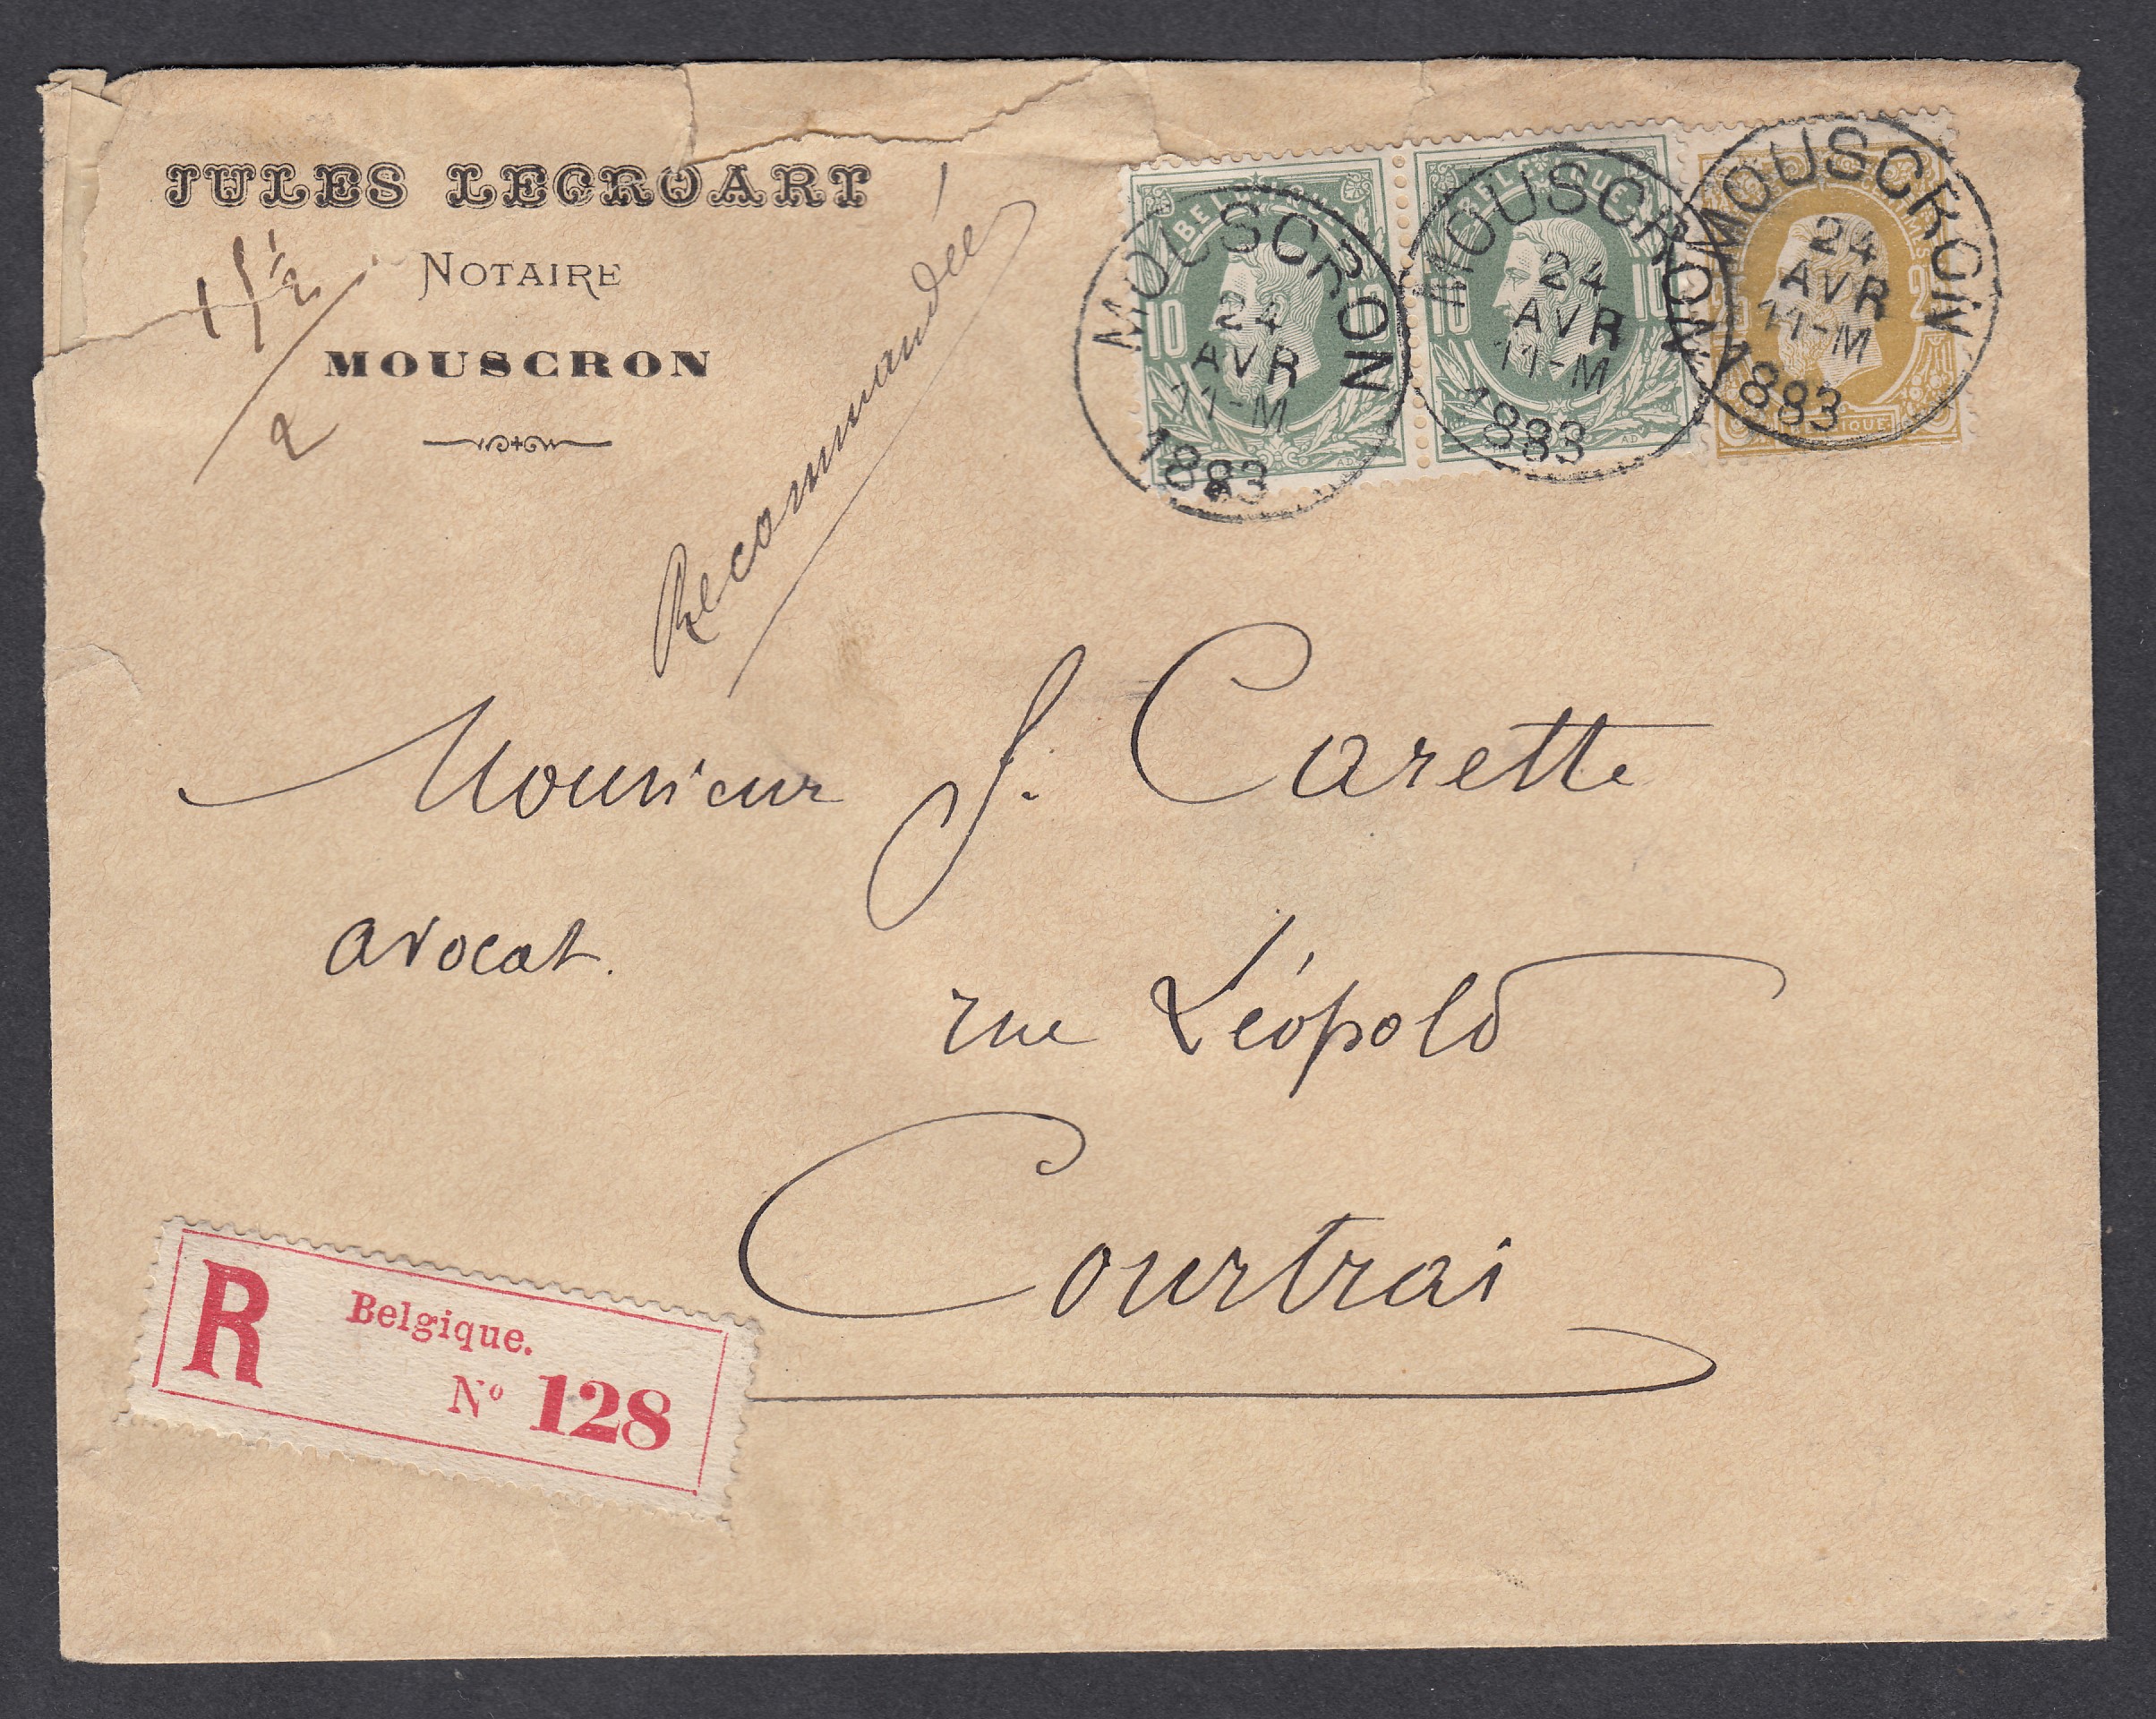 JULES LECROART
NOTAIRE
MOUSCRON
1 1/2
2
Recommandée
BELGIQUE
10 10
MOUSCRON
24
AVR
11-M
1883
BELGIQUE
10 10
MOUSCRON
24
AVR
11-M
1883
MOUSCRON
24
AVR
11-M
1883
Monsieur J. Carette
avocat.
rue Léopold
Courtrai
R Belgique.
Nº 128